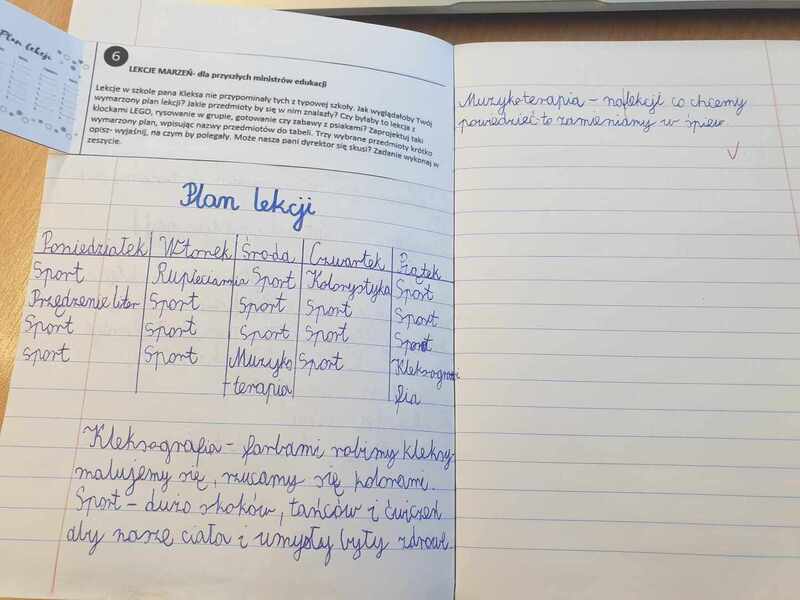 Plan lekcji
6
LEKCJE MARZEŃ- dla przyszłych ministrów edukacji
Lekcje w szkole pana Kleksa nie przypominały tych z typowej szkoły. Jak wyglądałoby Twój
wymarzony plan lekcji? Jakie przedmioty by się w nim znalazły? Czy byłaby to lekcja z
klockami LEGO, rysowanie w grupie, gotowanie czy zabawy z psiakami? Zaprojektuj taki
wymarzony plan, wpisując nazwy przedmiotów do tabeli. Trzy wybrane przedmioty krótko
opisz- wyjaśnij, na czym by polegały. Może nasza pani dyrektor się skusi? Zadanie wykonaj w
zeszycie.
Plan lekcji
Poniedziałek Wtorek Środa Czwartek Piątek
Sport Rupieciarnia Sport Kolorystyka Sport
Przędzenie liter Sport Sport Sport Sport
Sport Sport Sport Sport Sport
sport Sport Muzyko Sport Kleksogra
-terapia fia
Kleksografia - farbami robimy kleksy,
malujemy się, rzucamy się kolorami.
Sport - dużo skoków, tańców i ćwiczeń
aby nasze ciała i umysły były zdrowe.
Muzykoterapia - na lekcji co chcemy
powiedzieć to zamieniamy w śpiew.